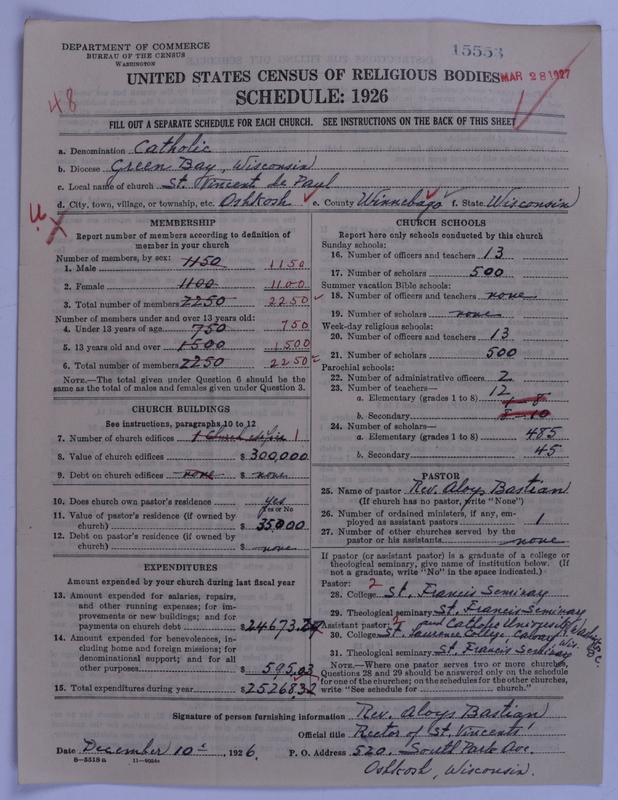 DEPARTMENT OF COMMERCE
BUREAU OF THE CENSUS
WASHINGTON
15553
UNITED STATES CENSUS OF RELIGIOUS BODIES
MAR 28 1927
48
SCHEDULE: 1926
FILL OUT A SEPARATE SCHEDULE FOR EACH CHURCH. SEE INSTRUCTIONS ON THE BACK OF THIS SHEET
a. Denomination Catholic
b. Diocese Green Bay, Wisconsin
c. Local name of church St. Vincent de Paul
d. City, town, village, or township, etc. Oshkosh e. County Winnebago f. State Wisconsin
MEMBERSHIP
Report number of members according to definition of
member in your church
Number of members, by sex:
1. Male 1150 1150
2. Female 1100 1100
3. Total number of members 2250 2250
Number of members under and over 13 years old:
4. Under 13 years of age 750 750
5. 13 years old and over 1500 1500
6. Total number of members 2250 2250
NOTE.—The total given under Question 6 should be the
same as the total of males and females given under Question 3.
CHURCH BUILDINGS
See instructions, paragraphs 10 to 12
7. Number of church edifices 1 Church edifice 1
8. Value of church edifices $ 300,000
9. Debt on church edifices none $ none
10. Does church own pastor's residence yes
Yes or No
11. Value of pastor's residence (if owned by
church) $ 35000
12. Debt on pastor's residence (if owned by
church) $ none
EXPENDITURES
Amount expended by your church during last fiscal year
13. Amount expended for salaries, repairs,
and other running expenses; for im-
provements or new buildings; and for
payments on church debt $ 24673.
14. Amount expended for benevolences, in-
cluding home and foreign missions; for
denominational support; and for all
other purposes $ 595.03
15. Total expenditures during year $ 25268.32
CHURCH SCHOOLS
Report here only schools conducted by this church
Sunday schools:
16. Number of officers and teachers 13
17. Number of scholars 500
Summer vacation Bible schools:
18. Number of officers and teachers none
19. Number of scholars none
Week-day religious schools:
20. Number of officers and teachers 13
21. Number of scholars 500
Parochial schools:
22. Number of administrative officers 2
23. Number of teachers— 12
a. Elementary (grades 1 to 8) 1-8
b. Secondary 8-10
24. Number of scholars—
a. Elementary (grades 1 to 8) 485
b. Secondary 45
PASTOR
25. Name of pastor Rev. Aloys Bastian
(If church has no pastor, write "None")
26. Number of ordained ministers, if any, em-
ployed as assistant pastors 1
27. Number of other churches served by the
pastor or his assistants none
If pastor (or assistant pastor) is a graduate of a college or
theological seminary, give name of institution below. (If
not a graduate, write "No" in the space indicated.)
Pastor: 2
28. College St. Francis Seminary
29. Theological seminary St. Francis Seminary
and Catholic University Washington D.C.
Assistant pastor: 2
30. College St. Laurence College Calvary Wis.
31. Theological seminary St. Francis Seminary
NOTE.—Where one pastor serves two or more churches,
Questions 28 and 29 should be answered only on the schedule
for one of the churches; on the schedules for the other churches,
write "See schedule for church."
Signature of person furnishing information Rev. Aloys Bastian
Official title Rector of St. Vincents
Date December 10, 1926. P. O. Address 520. South Park Ave.
8—5518 a
Oshkosh, Wisconsin.